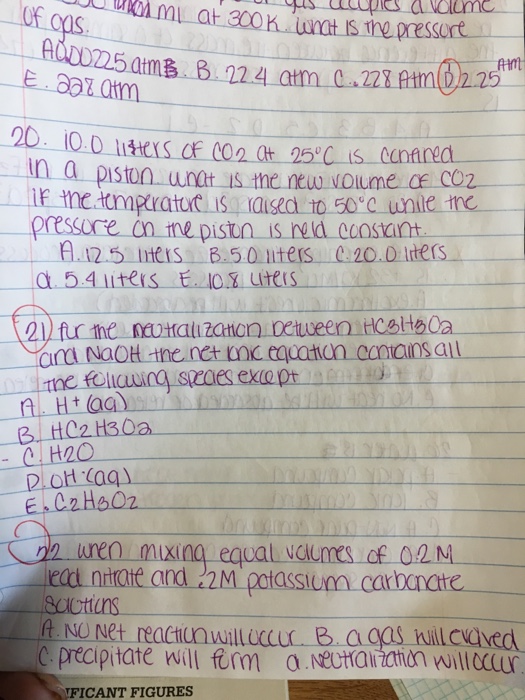 gas occupies a volume
of gas. ml at 300K. what is the pressure
A. 00225 atm B. 22.4 atm C. .228 Atm D 2.25 Atm
E. 228 atm
20. 10.0 liters of CO2 at 25°C is confined
in a piston what is the new volume of CO2
if the temperature is raised to 50°C while the
pressure on the piston is held constant.
A. 12.5 liters B. 5.0 liters C. 20.0 liters
d. 5.4 liters E. 10.8 liters
21) for the neutralization between HC3H3O2
and NaOH the net ionic equation contains all
the following species except
A. H+ (aq)
B. HC2H3O2
- C. H2O
D. OH-(aq)
E. C2H3O2
22 when mixing equal volumes of 0.2M
lead nitrate and .2M potassium carbonate
solutions
A. NO Net reaction will occur B. a gas will evolved
C. precipitate will form d. neutralization will occur
IFICANT FIGURES